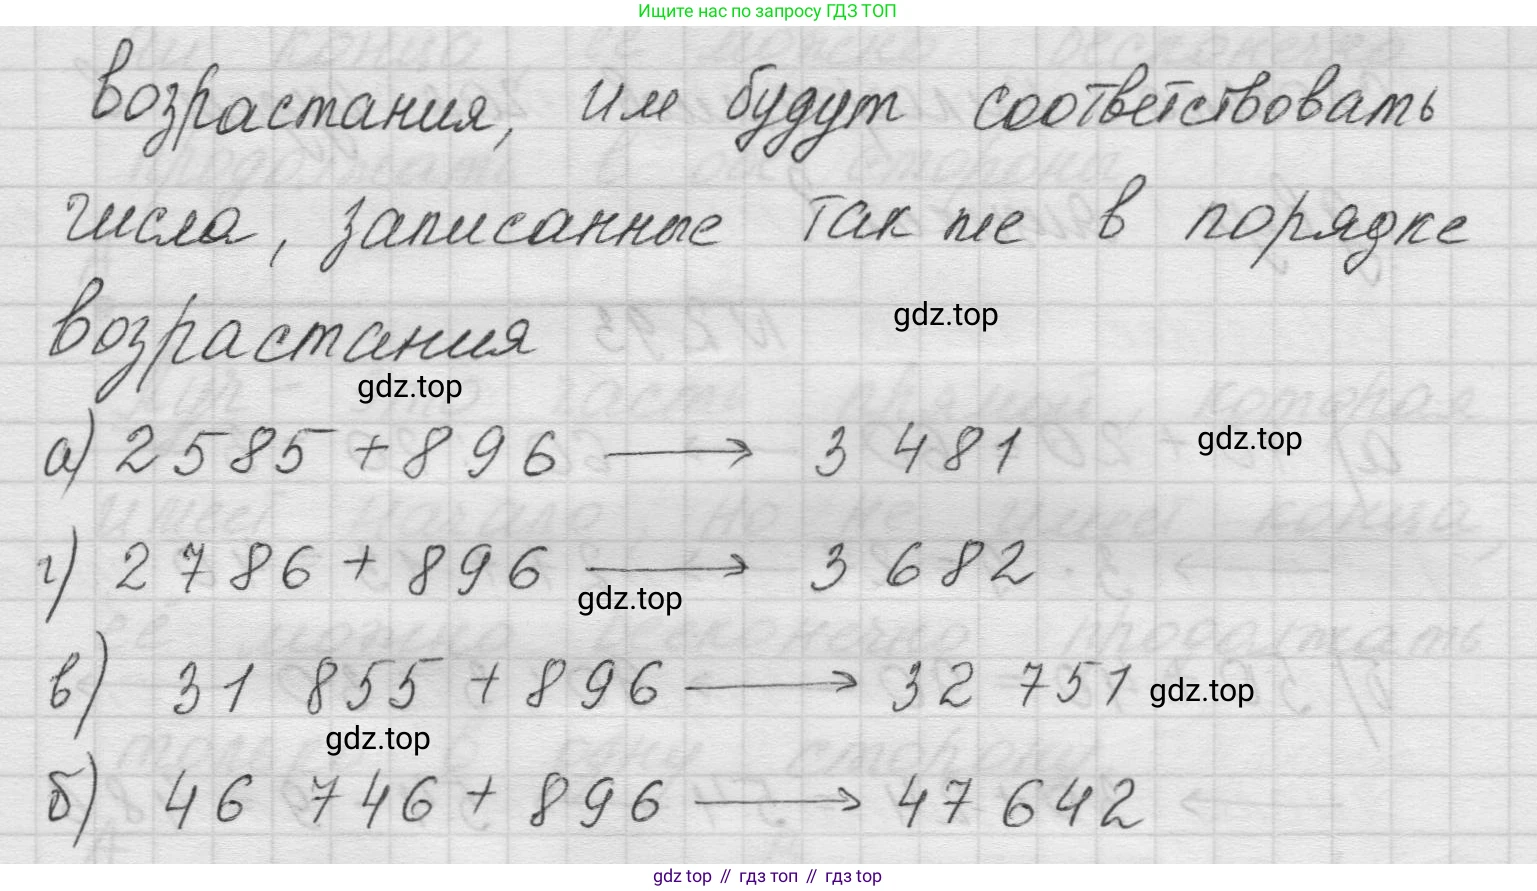 Ищите нас по запросу ГДЗ ТОП
возрастания, им будут соответствовать
числа, записанные так же в порядке
возрастания
gdz.top
gdz.top
а) 2585 + 896 → 3 481
gdz.top
г) 2786 + 896 → 3 682
gdz.top
в) 31 855 + 896 → 32 751
gdz.top
gdz.top
б) 46 746 + 896 → 47 642
gdz top // гдз топ // гдз top